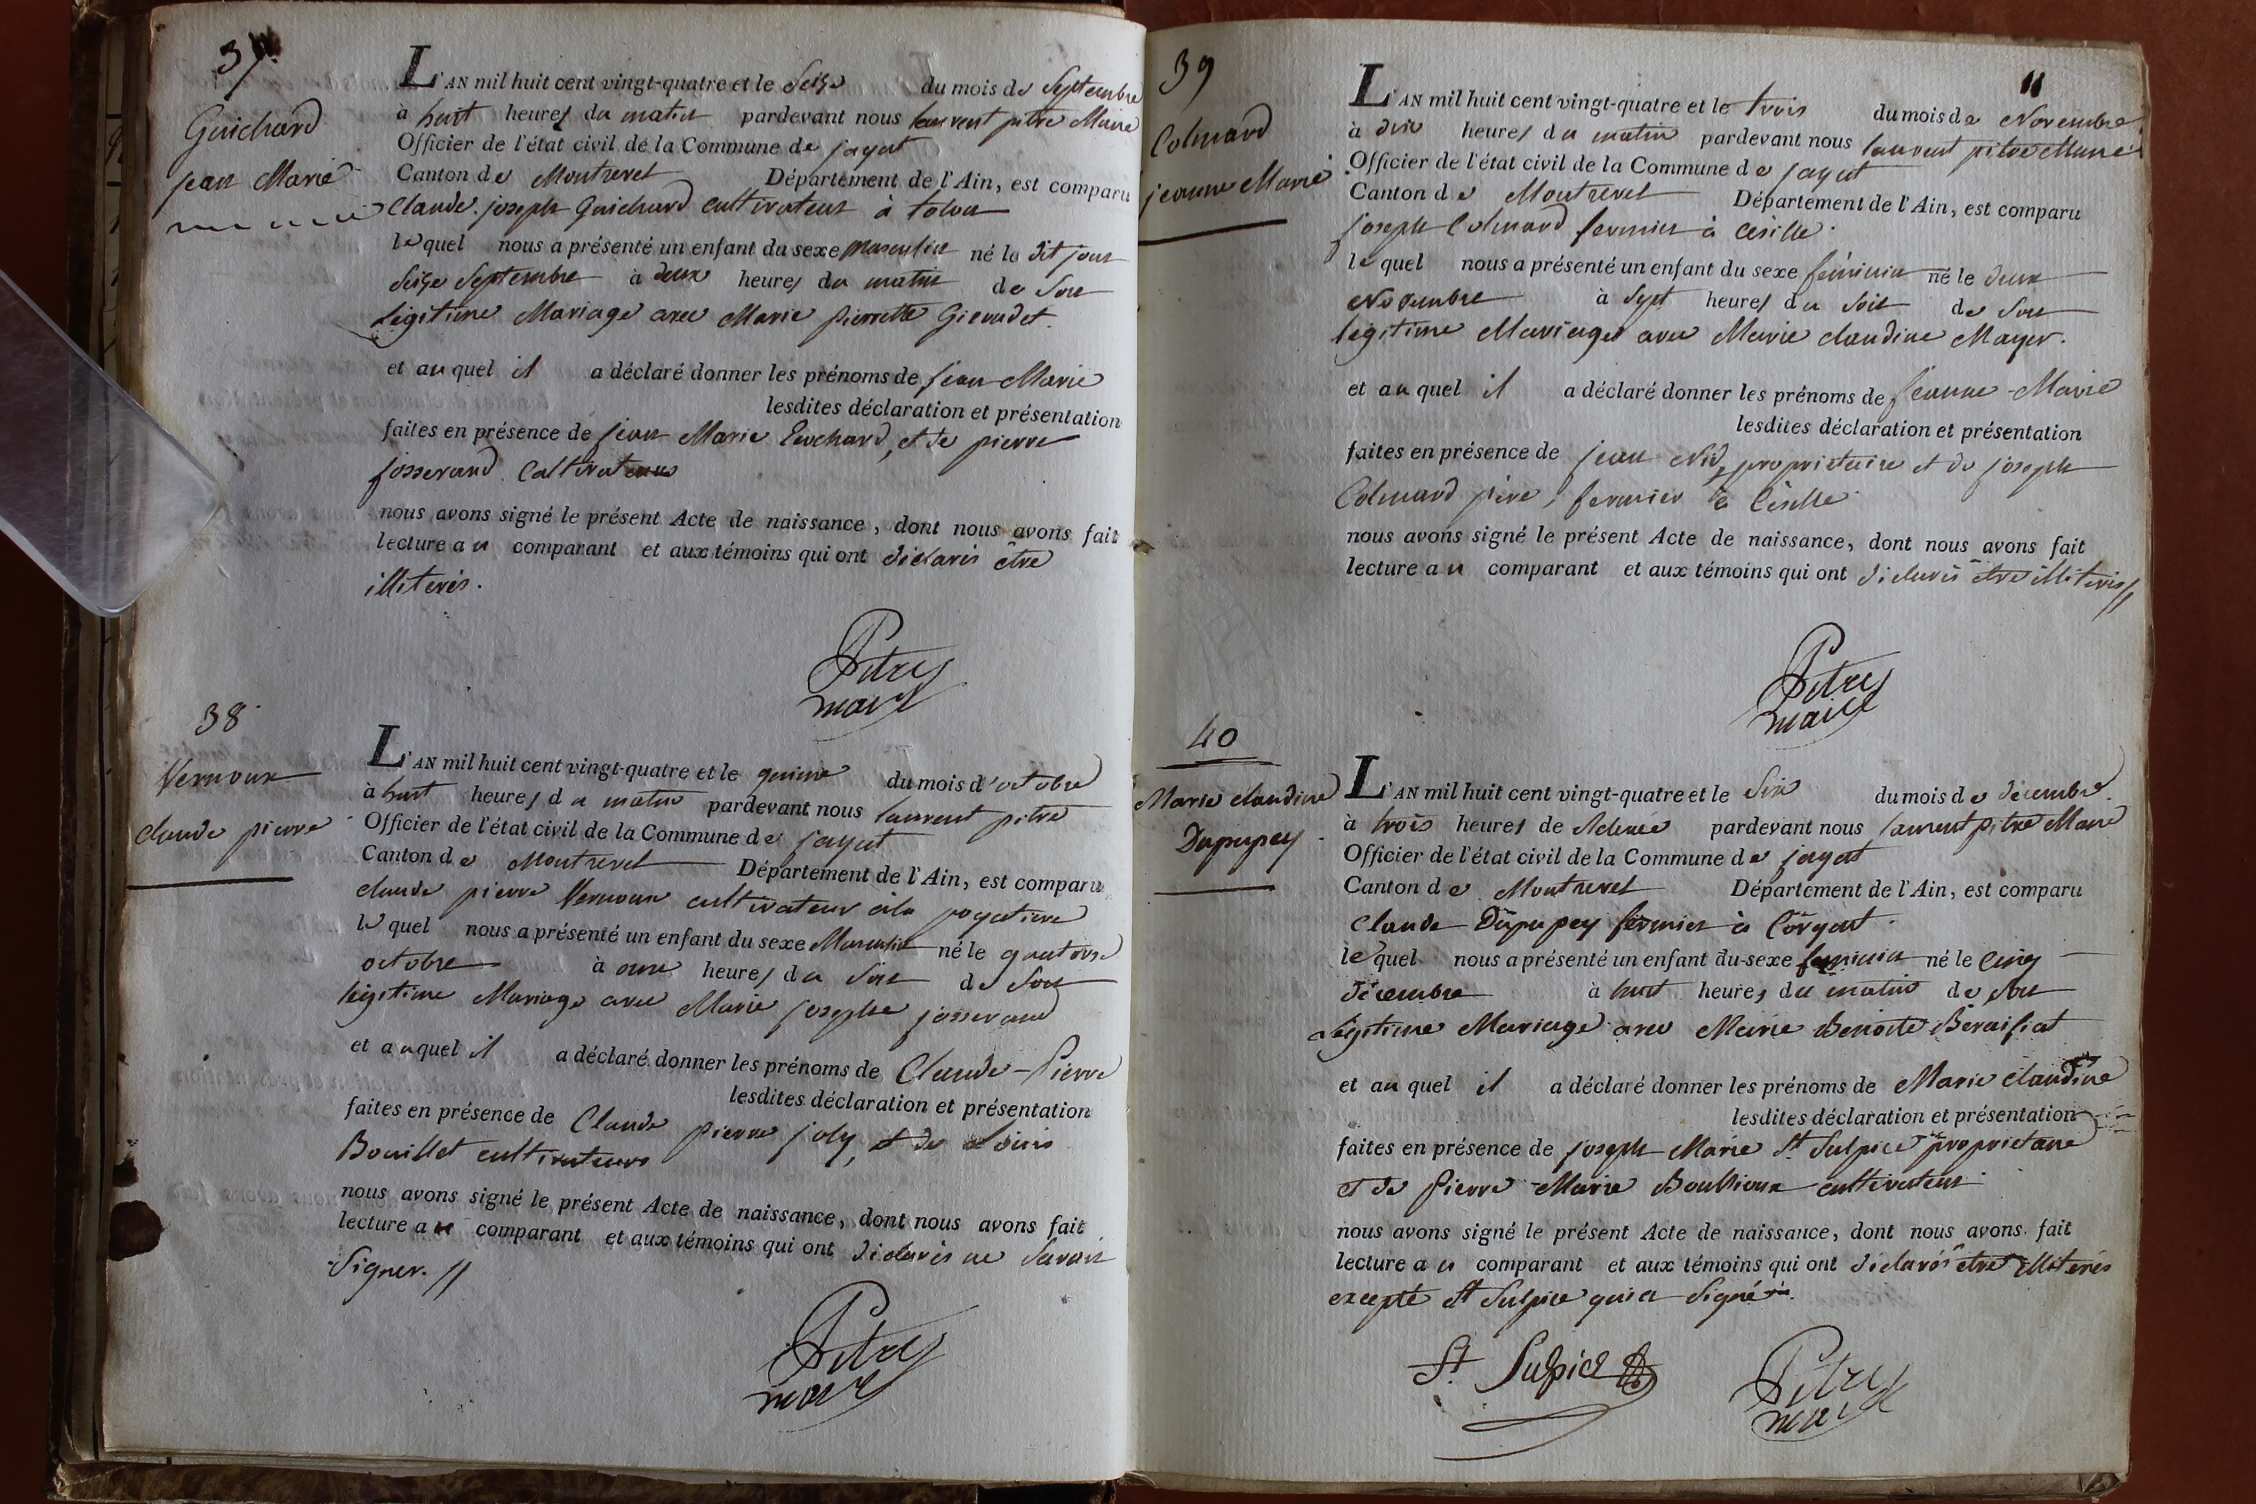 37.
Guichard
jean Marie
L'AN mil huit cent vingt-quatre et le Seize du mois de Septembre
à huit heures du matin pardevant nous laurent pitre Maire
Officier de l'état civil de la Commune de jayat
Canton de Montrevel Département de l'Ain, est comparu
Claude joseph Guichard cultivateur à
lequel nous a présenté un enfant du sexe masculin né le dit jour
Seize Septembre à deux heures du matin de Son
légitime Mariage avec Marie pierrette Giroudet.
et auquel il a déclaré donner les prénoms de jean Marie
lesdites déclaration et présentation
faites en présence de jean Marie et de pierre
josserand Cultivateurs
nous avons signé le présent Acte de naissance, dont nous avons fait
lecture au comparant et aux témoins qui ont déclarés être
illiterés.
Pitre
maire
38
Vernoux
claude pierre
L'AN mil huit cent vingt-quatre et le quinze du mois d'octobre
à huit heures du matin pardevant nous laurent pitre
Officier de l'état civil de la Commune de jayat
Canton de Montrevel Département de l'Ain, est comparu
claude pierre Vernoux cultivateur à la
lequel nous a présenté un enfant du sexe Masculin né le quatorze
octobre à onze heures du Soir de Son
légitime Mariage avec Marie josephe josserand
et auquel il a déclaré donner les prénoms de Claude-Pierre
lesdites déclaration et présentation
faites en présence de Claude pierre joly, et de Louis
Bouillet cultivateurs
nous avons signé le présent Acte de naissance, dont nous avons fait
lecture au comparant et aux témoins qui ont déclarés ne Savoir
Signer. //
Pitre
maire
39
Colmard
jeanne Marie
11
L'AN mil huit cent vingt-quatre et le trois du mois de Novembre
à dix heures du matin pardevant nous laurent pitre Maire
Officier de l'état civil de la Commune de jayat
Canton de Montrevel Département de l'Ain, est comparu
joseph Colmard fermier à Césille.
lequel nous a présenté un enfant du sexe féminin né le deux
Novembre à Sept heures du Soir de Son
légitime Mariage avec Marie claudine Mayer.
et auquel il a déclaré donner les prénoms de jeanne-Marie
lesdites déclaration et présentation
faites en présence de jean propriétaire et de joseph
Colmard père, fermier à Césille
nous avons signé le présent Acte de naissance, dont nous avons fait
lecture au comparant et aux témoins qui ont déclarés être illiterés //
Pitre
maire
40
Marie claudine
Dupupey
L'AN mil huit cent vingt-quatre et le Six du mois de décembre
à trois heures de Relevée pardevant nous laurent pitre Maire
Officier de l'état civil de la Commune de jayat
Canton de Montrevel Département de l'Ain, est comparu
Claude Dupupey fermier à
lequel nous a présenté un enfant du sexe feminin né le Cinq
décembre à huit heures du matin de Son
Légitime Mariage avec Marie Benoite Beraifiat
et auquel il a déclaré donner les prénoms de Marie claudine
lesdites déclaration et présentation
faites en présence de joseph Marie St Sulpice propriétaire
et de Pierre Marie cultivateur
nous avons signé le présent Acte de naissance, dont nous avons fait
lecture au comparant et aux témoins qui ont déclarés être illiterés
excepté St Sulpice qui a Signé.
St Sulpice
Pitre
maire